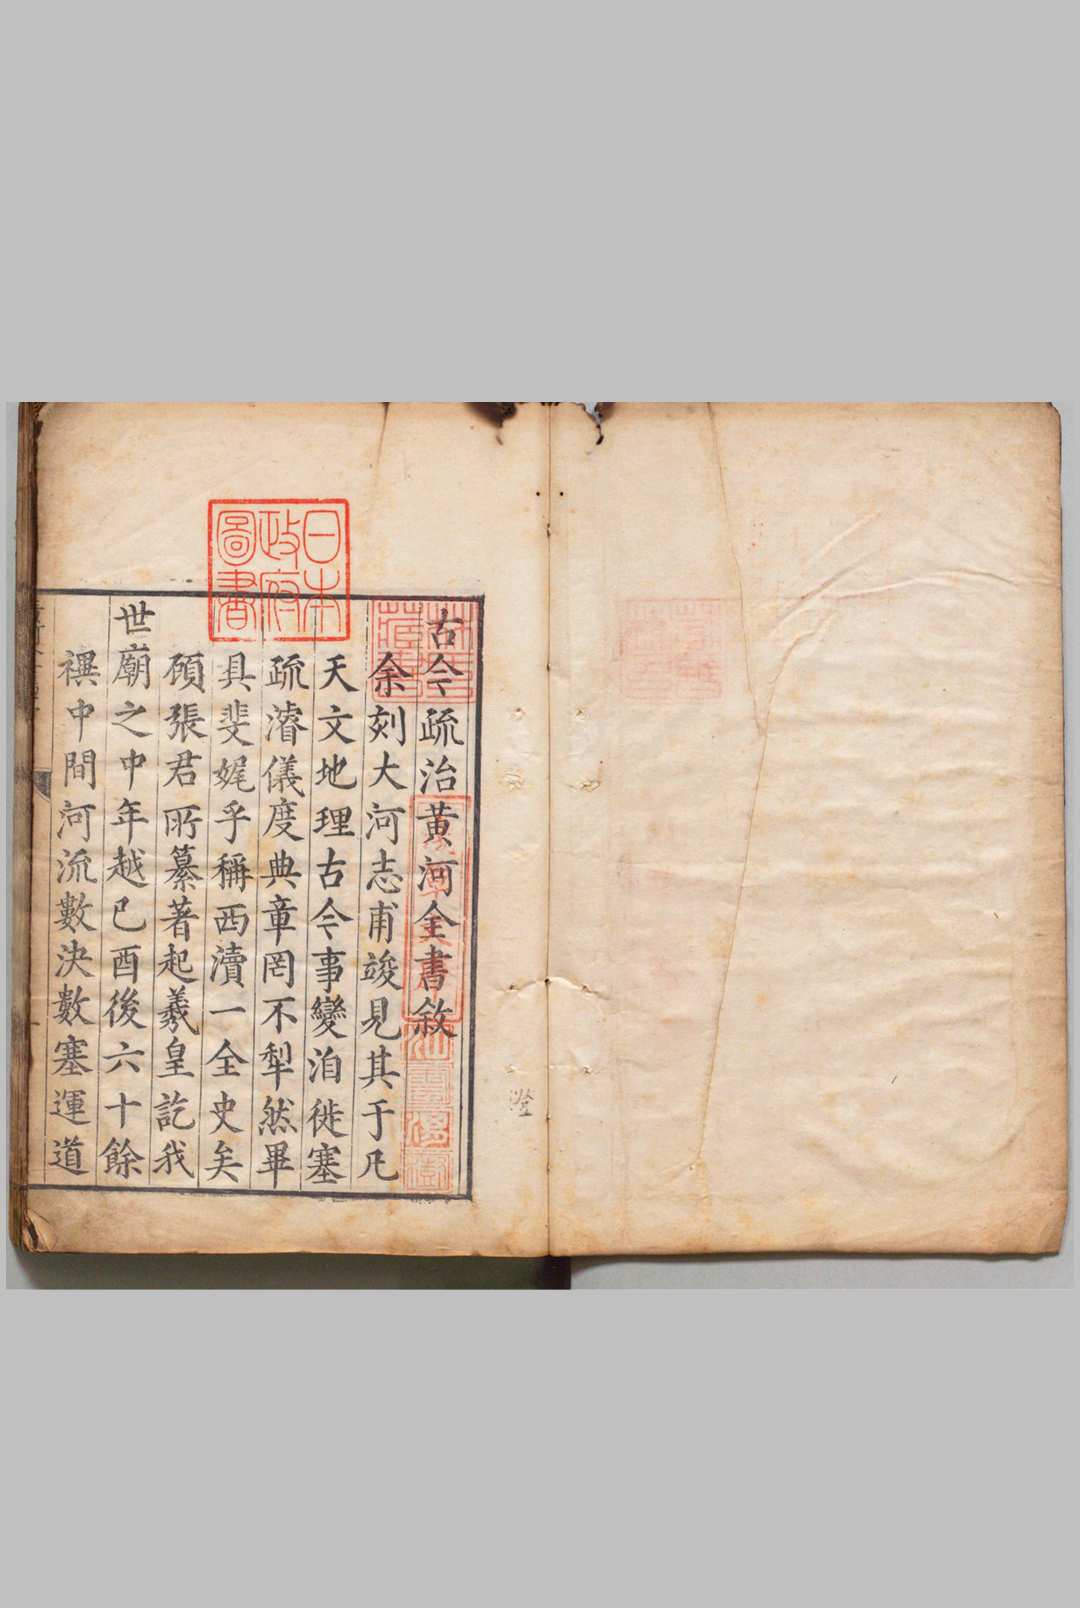 古今疏治黄河全書敘
余刻大河志甫竣見其于凡
天文地理古今事變洎徙塞
疏濬儀度典章罔不犁然畢
具斐娓乎稱西瀆一全史矣
顧張君所纂著起羲皇訖我
世廟之中年越己酉後六十餘
禩中間河流數決數塞運道
日本
政府
圖書